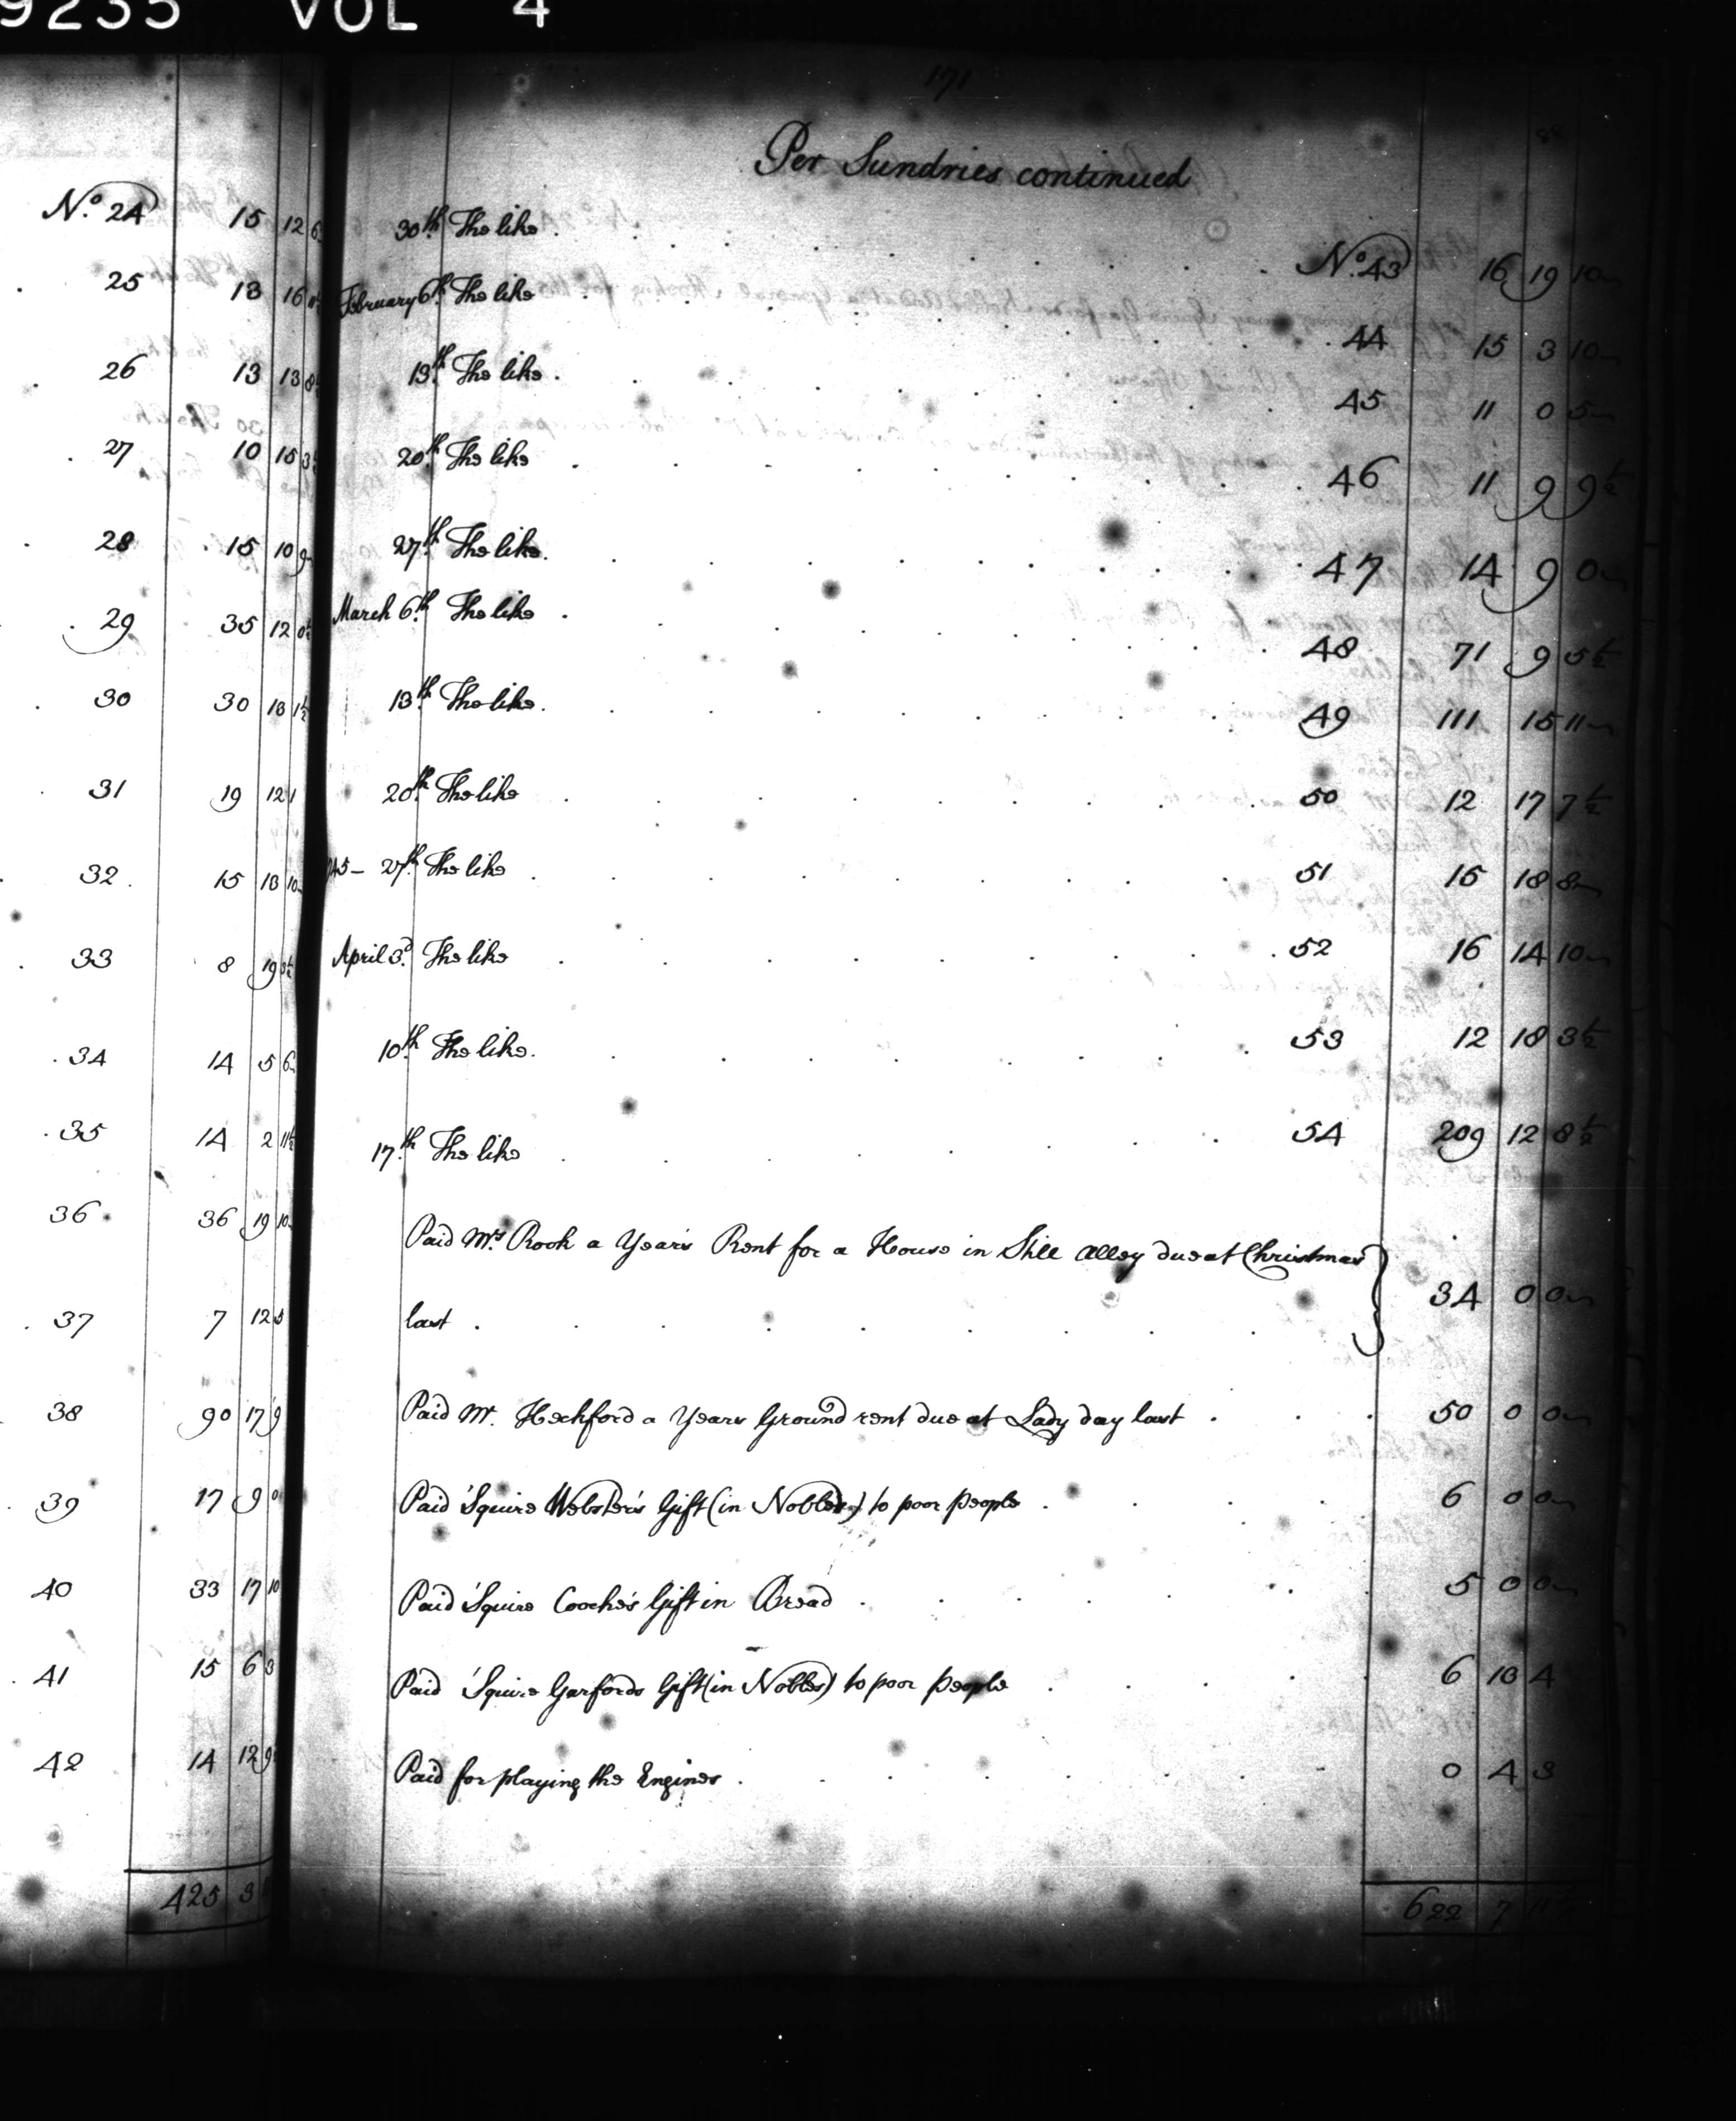 9235 VOL 4
171
Per Sundries continued
No. 24 15 12 6
25 13 16
26 13 13 8
27 10 15 3
28 15 10 9
29 35 12 0½
30 30 13 1½
31 19 12 1
32 15 13 10
33 8 19
34 14 5 6
35 14 2 11½
36 36 19 10
37 7 12 5
38 90 17 9
39 17 9 0
40 33 17 10
41 15 6 3
42 14 12 9
425 3
30th The like No. 43 16 19 10
February 6th The like 44 15 3 10
13th The like 45 11 0 5
20th The like 46 11 9 9½
27th The like 47 14 9 0
March 6th The like 48 71 9 5½
13th The like 49 111 15 11
20th The like 50 12 17 7½
45 – 27th The like 51 15 18 8
April 3d The like 52 16 14 10
10th The like 53 12 18 3½
17th The like 54 209 12 8½
Paid Mrs Rook a Year's Rent for a House in Still Alley due at Christmas
last 34 0 0
Paid Mr. Heckford a Years Ground rent due at Lady day last 50 0 0
Paid 'Squire Webster's Gift (in Nobles) to poor People 6 0 0
Paid 'Squire Cooche's Gift in Bread 5 0 0
Paid 'Squire Garfords Gift (in Nobles) to poor People 6 13 4
Paid for playing the Engines 0 4 3
622 7 11½